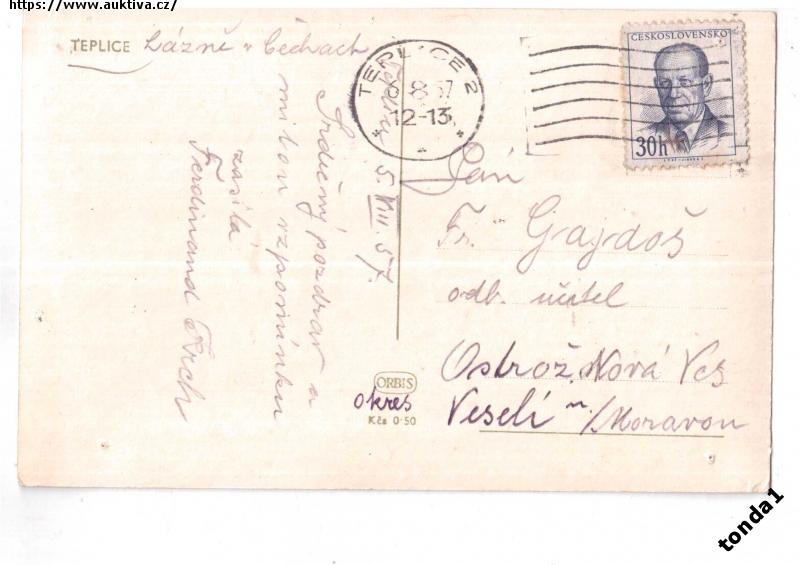 https://www.auktiva.cz/
TEPLICE Lázně v Čechách
TEPLICE 2
6.8.57
12-13
ČESKOSLOVENSKO
30h
5. VIII. 57.
Srdečný pozdrav a
milou vzpomínku
zasílá
Ferdinand Krch
Pán
Fr. Gajdoš
odb. učitel
Ostrož. Nová Ves
okres Veselí n/Moravou
ORBIS
Kčs 0·50
tonda1